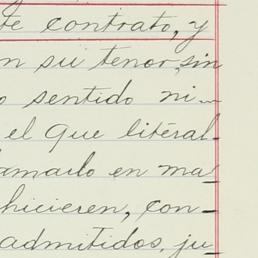 te contrato, y
n su tenor, sin
o sentido ni-
el que literal-
amarlo en ma
hicieren, con-
admitidos, ju-